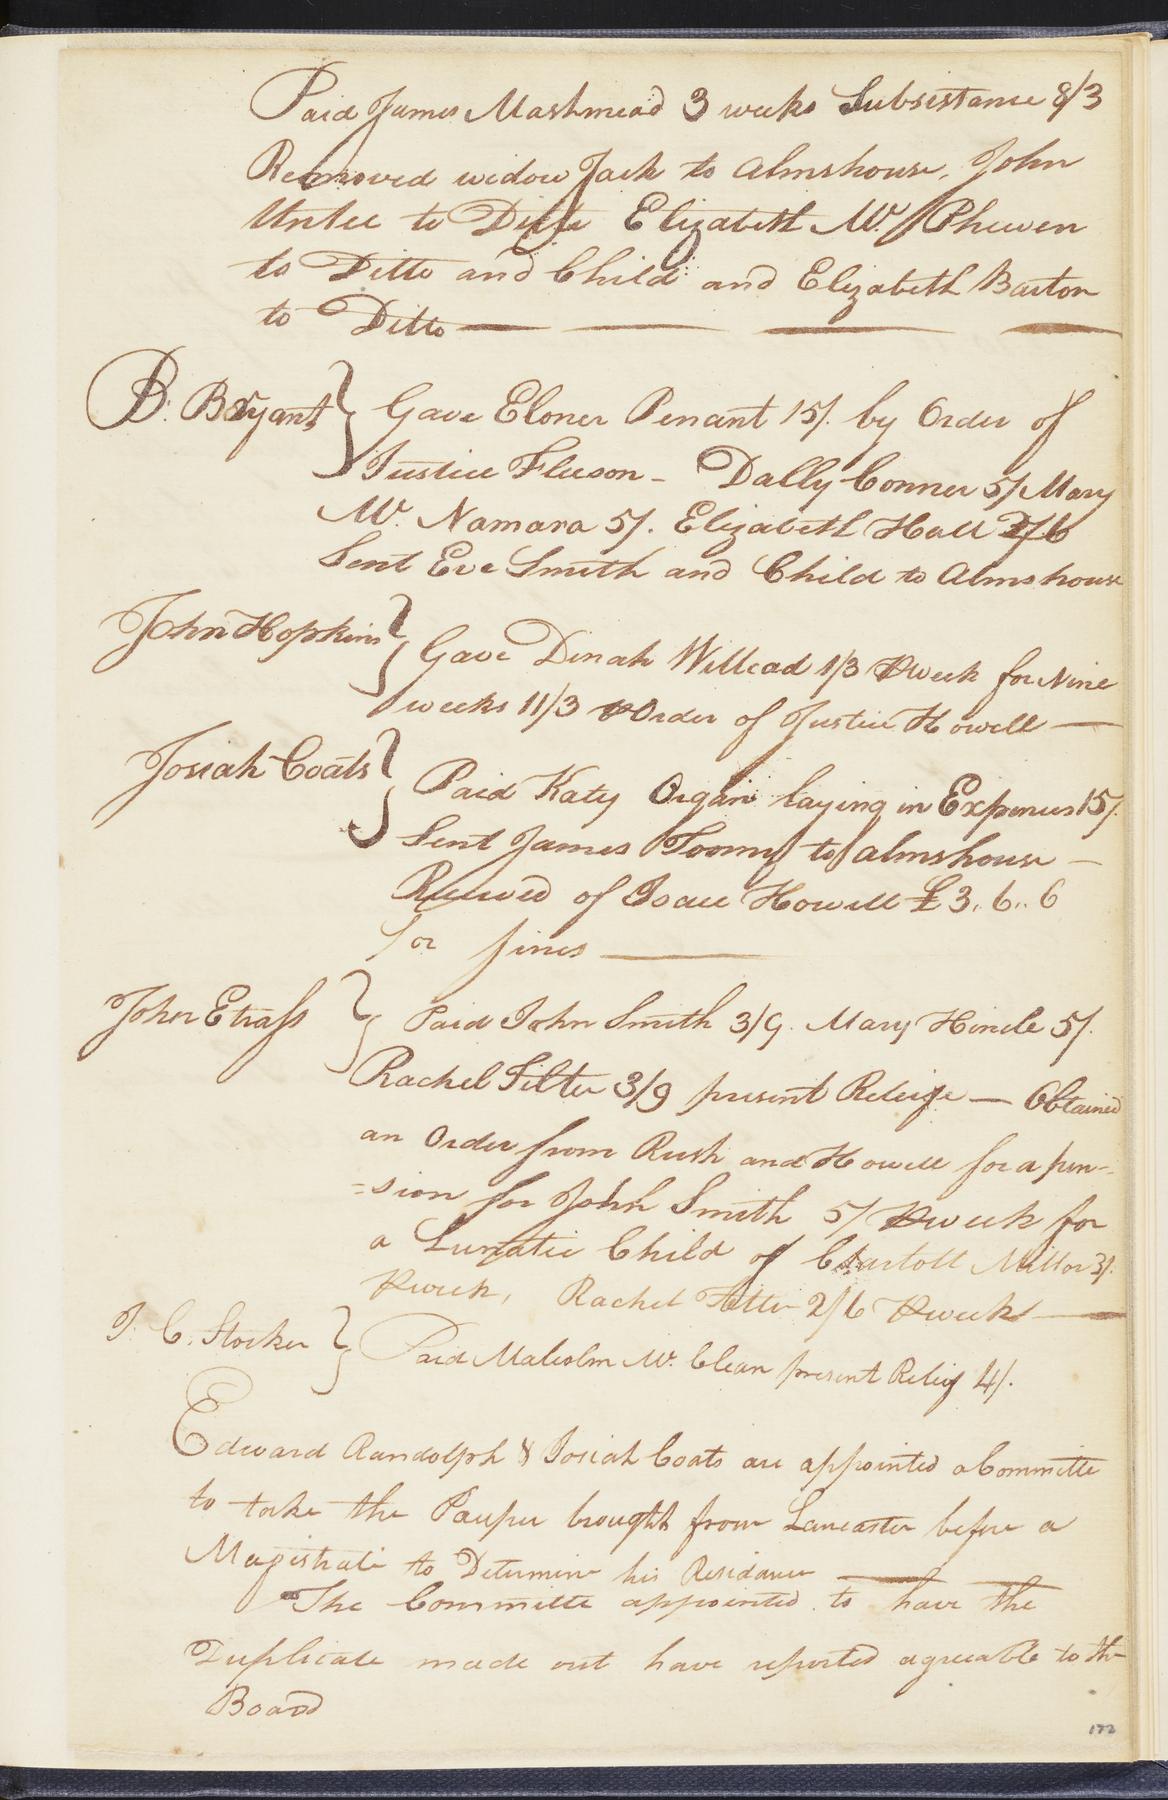 Paid James Mashmead 3 weeks Subsistance 8/3
Removed widow Jack to Almshouse, John
to Ditto Elizabeth Mc. Phewen
to Ditto and Child and Elizabeth Barton
to Ditto
B. Bryant } Gave Eloner Penant 15/. by Order of
Justice Fleeson - Dally Conner 5/ Mary
Mc. Namara 5/. Elizabeth Hall 2/6
Sent Eve Smith and Child to Almshouse
John Hopkins } Gave Dinah Willcad 1/3 ⅌ Week for Nine
weeks 11/3 ⅌ Order of Justice Howell
Josiah Coats } Paid Katy Organ laying in Expences 15/.
Sent James Toomy to almshouse
Received of Isaac Howell £3..6..6
for fines
John Etrass } Paid John Smith 3/9. Mary Hinde 5/.
Rachel Filter 3/9 present Releife — Obtained
an Order from Rush and Howell for a pen-
=sion for John Smith 5/ ⅌ week for
a Lunatic Child of Chartott Millor 3/.
⅌ week, Rachel 2/6 ⅌ week
J. C. Stocker } Paid Malcolm Mc. Clean present Relief 4/.
Edward Randolph & Josiah Coats are appointed a Committe
to take the Pauper brought from Lancaster before a
Magistrate to Determine his Residance
The Committe appointed to have the
Duplicate made out have reported agreable to the
Board
172